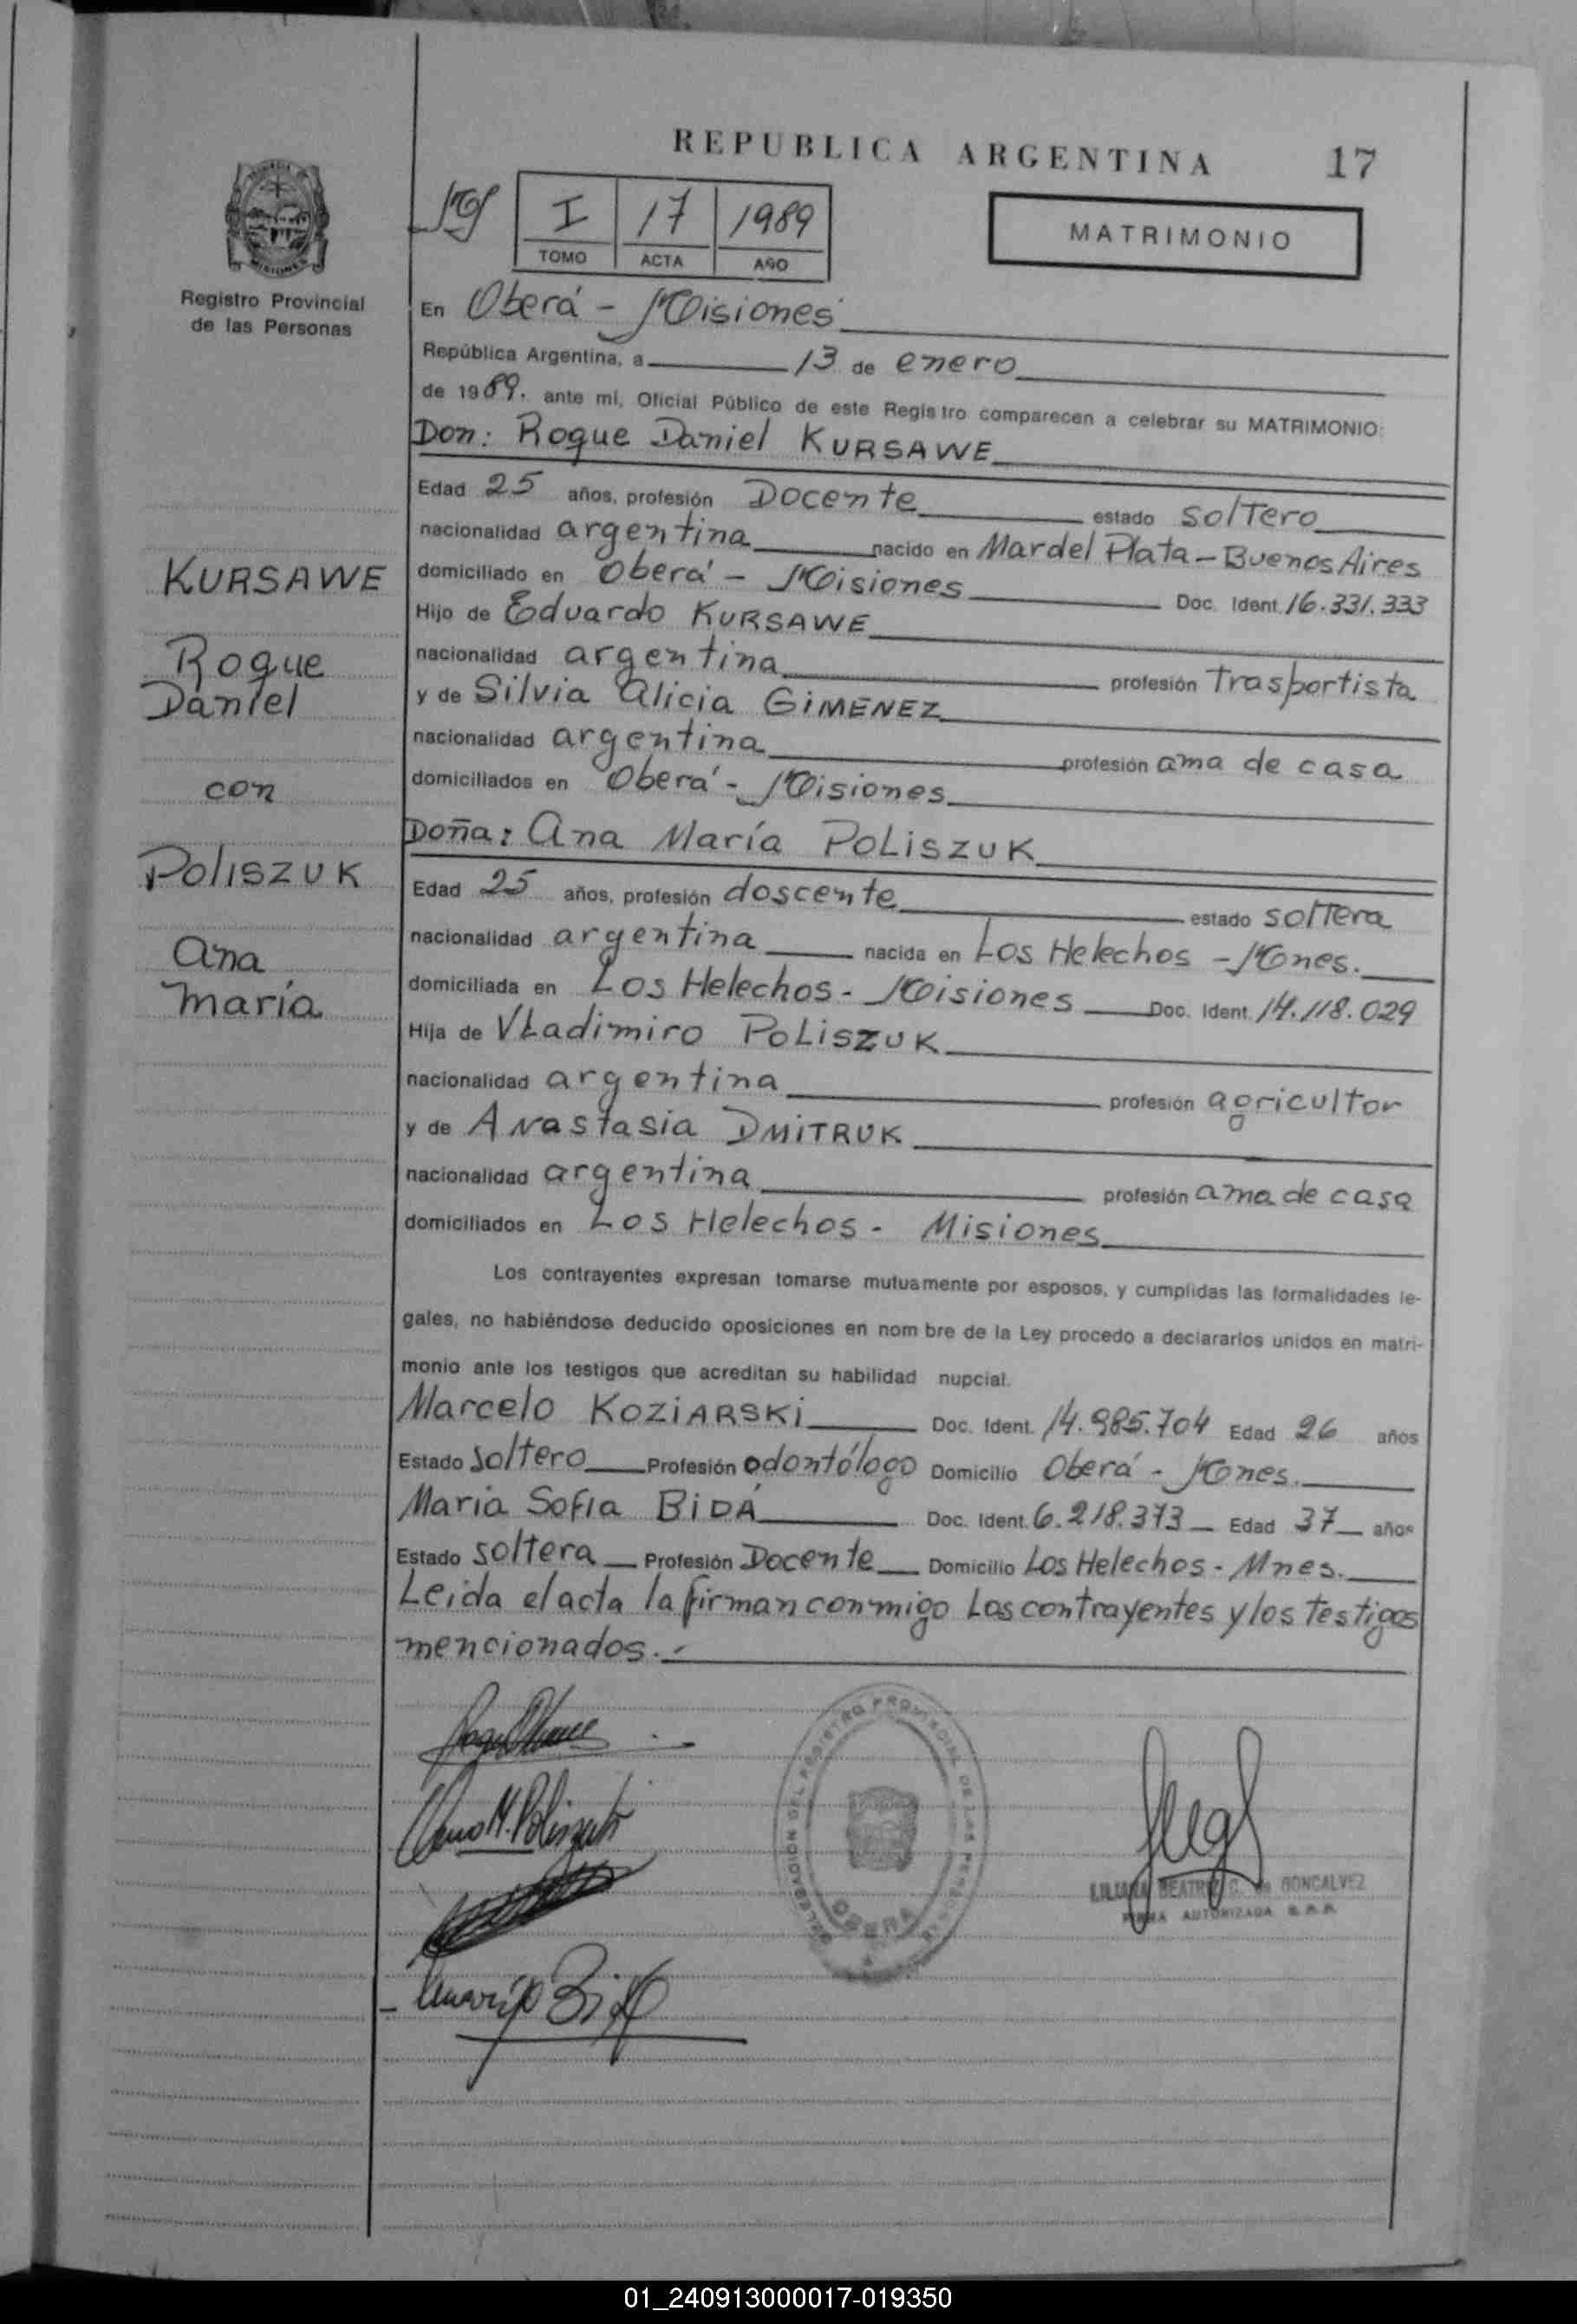 REPUBLICA ARGENTINA 17
I 17 1989
TOMO ACTA AÑO
MATRIMONIO
MISIONES
Registro Provincial
de las Personas
En Oberá - Misiones
República Argentina, a 13 de enero
de 1989. ante mí, Oficial Público de este Registro comparecen a celebrar su MATRIMONIO:
Don: Roque Daniel KURSAWE
Edad 25 años, profesión Docente estado soltero
nacionalidad argentina nacido en Mar del Plata - Buenos Aires
domiciliado en Oberá - Misiones Doc. Ident. 16.331.333
Hijo de Eduardo KURSAWE
nacionalidad argentina profesión Trasportista
y de Silvia Alicia GIMENEZ
nacionalidad argentina profesión ama de casa
domiciliados en Oberá - Misiones
Doña: Ana María POLISZUK
Edad 25 años, profesión doscente estado soltera
nacionalidad argentina nacida en Los Helechos - Mnes.
domiciliada en Los Helechos - Misiones Doc. Ident. 14.118.029
Hija de Vladimiro POLISZUK
nacionalidad argentina profesión agricultor
y de Anastasia DMITRUK
nacionalidad argentina profesión ama de casa
domiciliados en Los Helechos - Misiones
Los contrayentes expresan tomarse mutuamente por esposos, y cumplidas las formalidades le-
gales, no habiéndose deducido oposiciones en nombre de la Ley procedo a declararlos unidos en matri-
monio ante los testigos que acreditan su habilidad nupcial.
Marcelo KOZIARSKI Doc. Ident. 14.985.704 Edad 26 años
Estado soltero Profesión odontólogo Domicilio Oberá - Mones.
María Sofía BIDÁ Doc. Ident. 6.218.373 Edad 37 años
Estado soltera Profesión Docente Domicilio Los Helechos - Mnes.
Leida el acta la firman conmigo Los contrayentes y los testigos
mencionados.-
KURSAWE
Roque
Daniel
con
POLISZUK
Ana
María
Ana M. Poliszuk
DELEGACION DEL REGISTRO PROVINCIAL DE LAS PERSONAS
OBERA
LILIANA BEATRIZ C. de GONCALVEZ
FIRMA AUTORIZADA R.P.P.
01_240913000017-019350